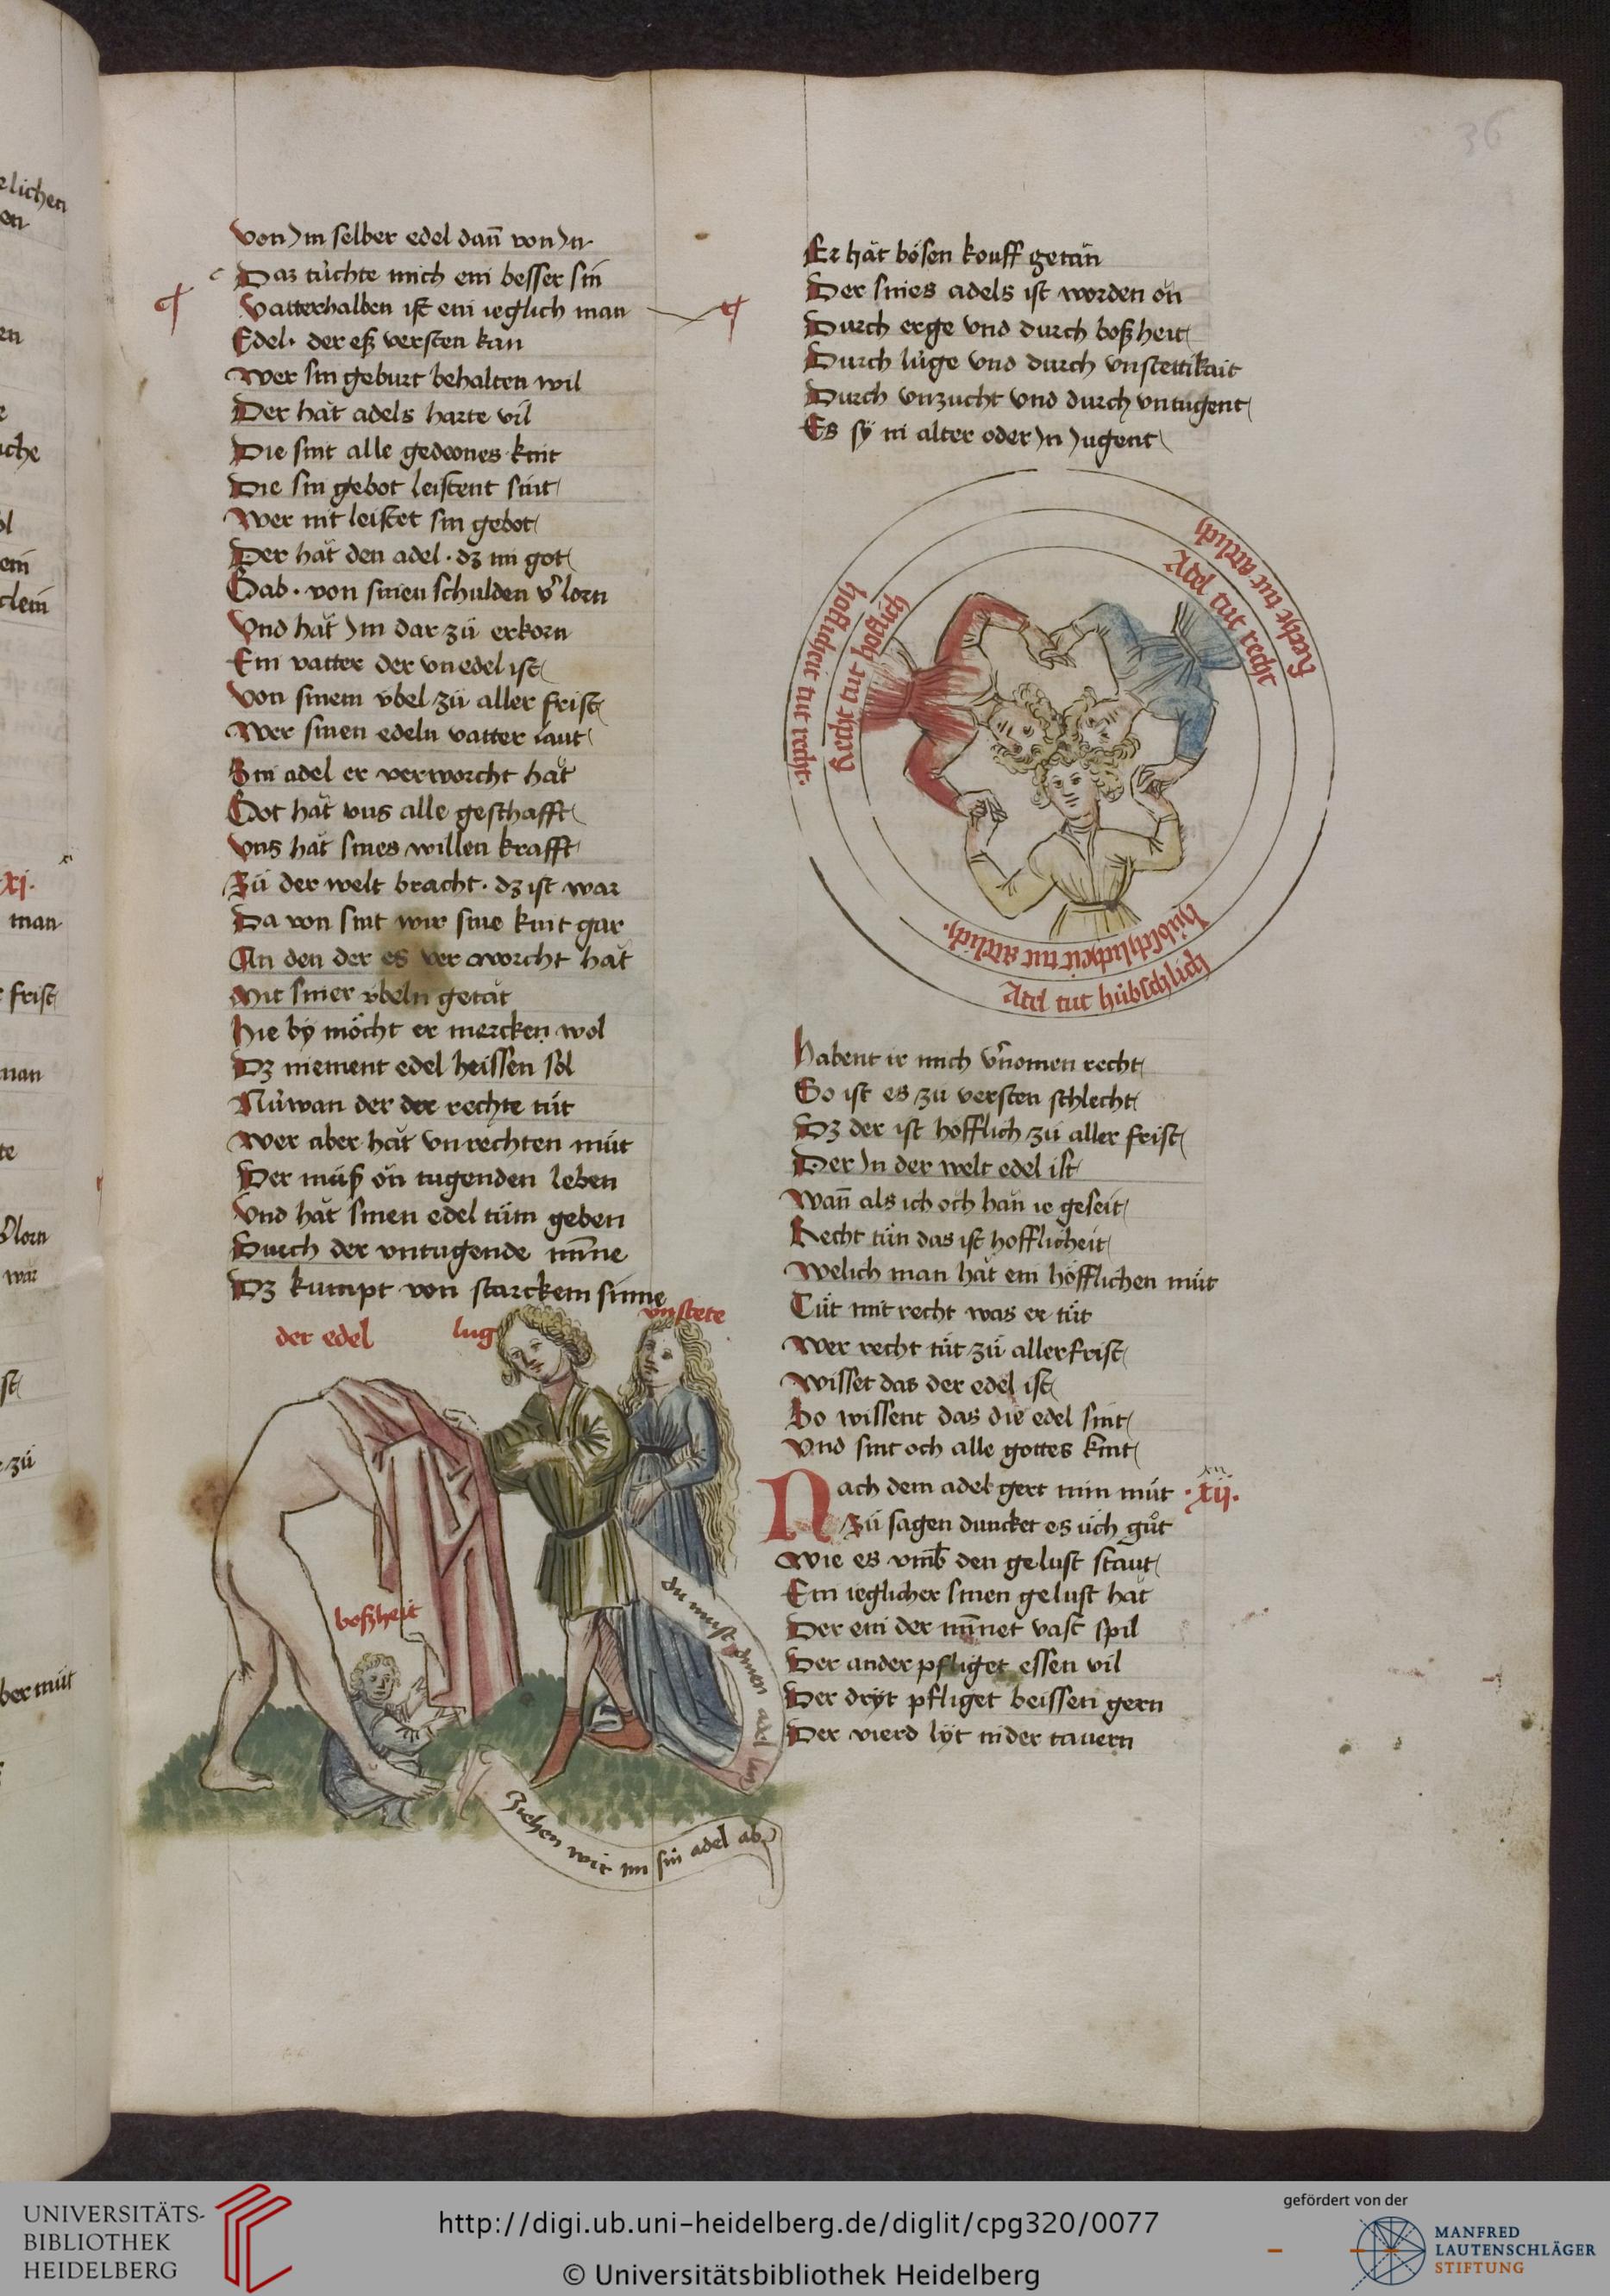 36
Von Im selber edel dan̄ von In
Daz tuͤchte mich ein besser sin
Vatterhalben ist ein ieglich man
Edel· der eß versten kan
Wer sin geburt behalten wil
Der hăt adels harte vil
Die sint alle gedeones kint
Die sin gebot leistent sint
Wer nit leistet sin gebot
Der hăt den adel · dz im got
Gab · von sinen schulden v̾lorn
Vnd hăt Im dar zuͤ erkorn
Ein vatter der vnedel ist
Von sinem vbel zuͤ aller frist
Wer sinen edeln vatter laut
Sin adel er verworcht hăt
Got hăt vns alle geschafft
Vns hăt sines willen krafft
Zuͤ der welt bracht · dz ist war
Da von sint wir sine kint gar
An den der es ver worcht hăt
Mit siner vbeln getăt
Hie by moͤcht er mercken wol
Dz niement edel heissen sol
Nuͤwan der der rechte tuͤt
Wer aber hăt vnrechten muͤt
Der muͤß ŏn tugenden leben
Vnd hăt sinen edel tuͤm geben
Durch der vntugende min̄e
Dz kumpt von starckem sinne
der edel
lug
vnstete
boßheit
du must dinen adel lan
Ziehen wir im sin adel ab
Er hăt boͤsen kouff getăn
Der sines adels ist worden ŏn
Durch erge vnd durch boßheit
Durch luͤge vnd durch vnstettikait
Durch vnzucht vnd durch vntugent
Es sy in alter oder In Jugent
Recht tut artlich
Adel tut recht
hoflicheit tut recht·
recht tut hoflich
hubschlicheit tut artlich·
Adel tut huͤbschlich
Habent ir mich v̾nomen recht
So ist es zu versten schlecht
Dz der ist hofflich zuͤ aller frist
Der In der welt edel ist
Wan̄ als ich och han ie geseit
Recht tuͤn das ist hofflicheit
Welich man hăt ein hoͤfflichen muͤt
Tuͤt mit recht was er tuͤt
Wer recht tuͤt zuͤ aller frist
Wisset das der edel ist
So wissent das die edel sint
Vnd sint och alle gottes kint
Nach dem adel gert min muͤt ·xij·
Zuͤ sagen duncket es uͤch guͦt
Wie es vmb den gelust staut
Ein ieglicher sinen gelust hăt
Der ein der min̄et vast spil
Der ander pfliget essen vil
Der dryt pfliget beissen gern
Der vierd lyt in der tauern
UNIVERSITÄTS-
BIBLIOTHEK
HEIDELBERG
http://digi.ub.uni-heidelberg.de/diglit/cpg320/0077
© Universitätsbibliothek Heidelberg
gefördert von der
MANFRED
LAUTENSCHLÄGER
STIFTUNG